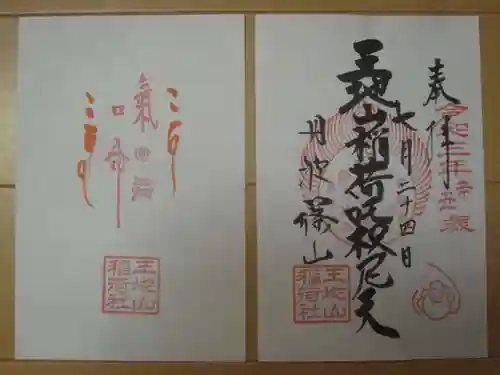 奉拝
令和三年辛丑歳
王地山稲荷吒枳尼天
七月二十四日
丹波篠山
王地山
稲荷社
氣
王地山
稲荷社